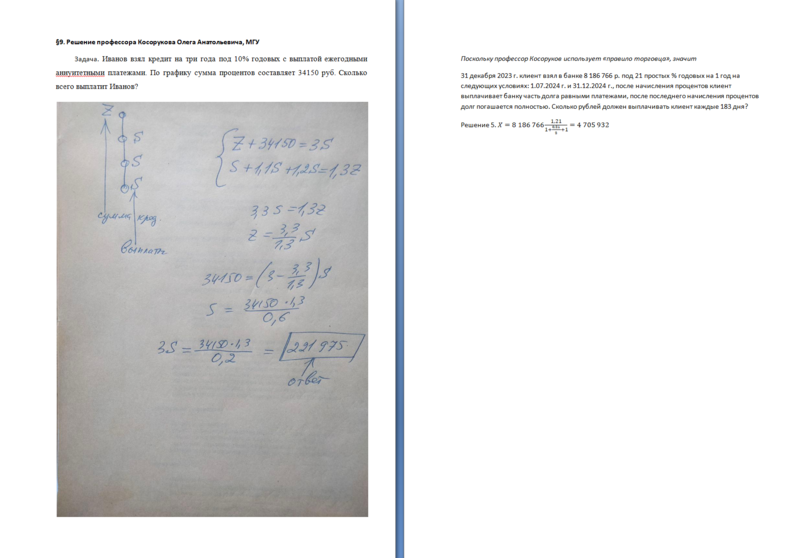 §9. Решение профессора Косорукова Олега Анатольевича, МГУ
Задача. Иванов взял кредит на три года под 10% годовых с выплатой ежегодными
аннуитетными платежами. По графику сумма процентов составляет 34150 руб. Сколько
всего выплатит Иванов?
Z
S
S
S
сумма кред.
выплаты
Z + 34150 = 3S
S + 1,1S + 1,2S = 1,3Z
3,3S = 1,3Z
Z = 3,3/1,3 S
34150 = (3 - 3,3/1,3) S
S = 34150 · 1,3 / 0,6
3S = 34150 · 1,3 / 0,2 = 221 975
ответ
Поскольку профессор Косоруков использует «правило торговца», значит
31 декабря 2023 г. клиент взял в банке 8 186 766 р. под 21 простых % годовых на 1 год на
следующих условиях: 1.07.2024 г. и 31.12.2024 г., после начисления процентов клиент
выплачивает банку часть долга равными платежами, после последнего начисления процентов
долг погашается полностью. Сколько рублей должен выплачивать клиент каждые 183 дня?
Решение 5. X = 8 186 766 1,21 / 1+0,21/2+1 = 4 705 932